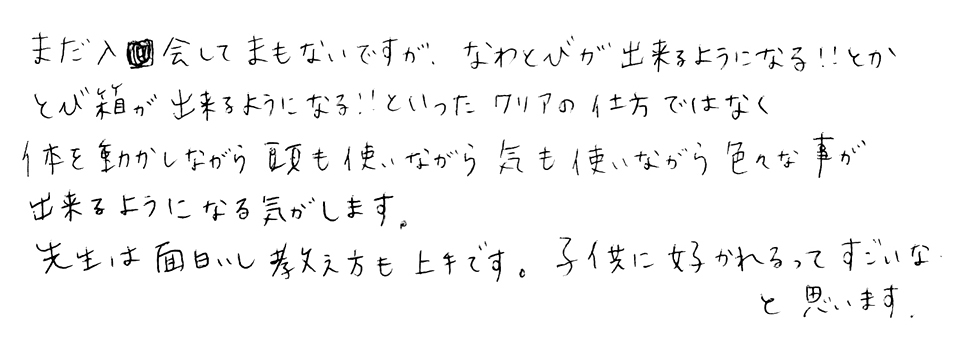 まだ入会してまもないですが、なわとびが出来るようになる!!とか
とび箱が出来るようになる!!といったクリアの仕方ではなく
体を動かしながら頭も使いながら気も使いながら色々な事が
出来るようになる気がします。
先生は面白いし教え方も上手です。子供に好かれるってすごいな
と思います.